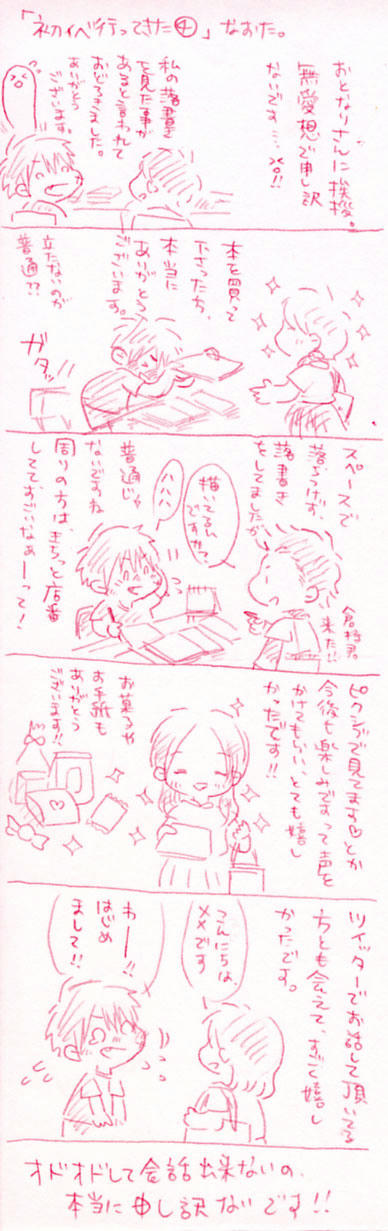 「初イベ行ってきた④」なおた。
おとなりさんに挨拶。
無愛想で申し訳
ないです…×0!!
私の落書き
を見た事が
あると言われて
おどろきました。
ありがとう
ございます。
本を買って
下さった方、
本当に
ありがとう
ございます。
立たないのが
普通??
ガタッ!!
スペースで
落ちつけず、
落書き
をしてましたが
倉持君
来た!!
描いてるん
ですか?
ハハハ
普通じゃ
ないですね
周りの方は、きちっと店番
してて、すごいなぁーって!
ピクシブで見てます♡とか
今後も楽しみですって声を
かけてもらい、とても嬉し
かったです!!
お菓子や
お手紙も
ありがとう
ございます!!
ツイッターでお話して頂いてる
方とも会えて、すごく嬉し
かったです。
こんにちは、
××です
わー!!
はじめ
まして!!
オドオドして会話出来ないの、
本当に申し訳ないです!!